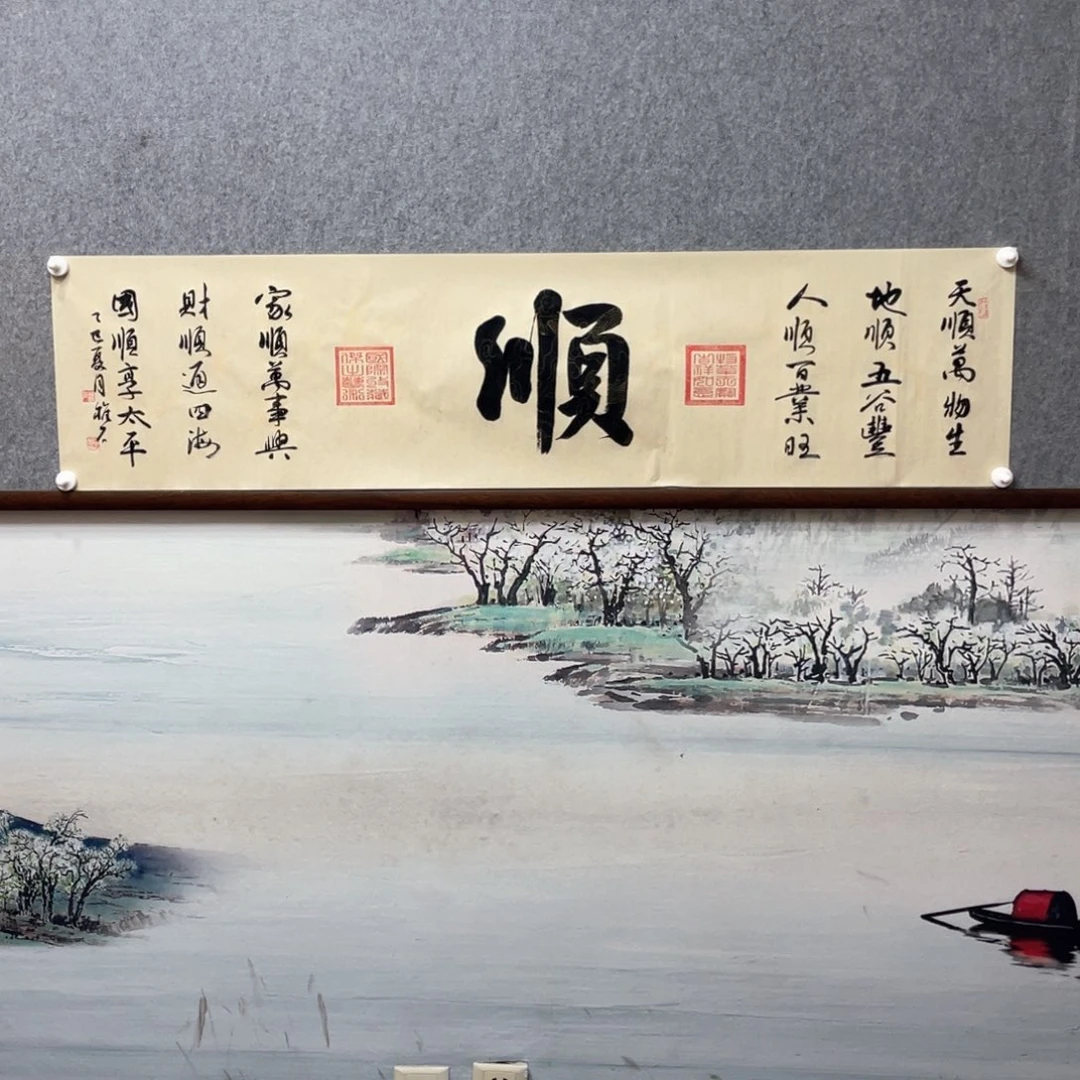 天順萬物生
地順五谷豐
人順百業旺
順
家順萬事興
財順通四海
國順享太平
乙巳夏月